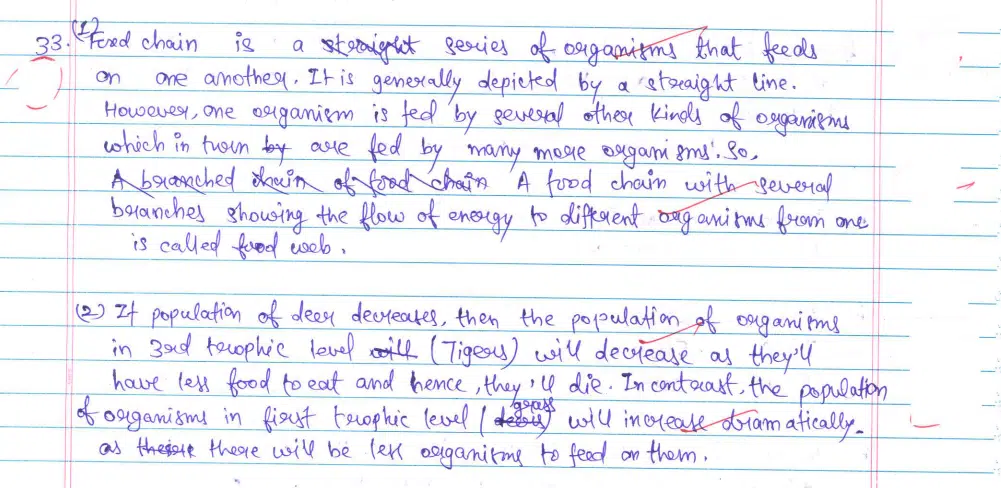 33. (1) Food chain is a straight series of organisms that feeds
on one another. It is generally depicted by a straight line.
However, one organism is fed by several other kinds of organisms
which in turn by are fed by many more organisms. So,
A branched chain of food chain A food chain with several
branches showing the flow of energy to different organisms from one
is called food web.
(2) If population of deer decreases, then the population of organisms
in 3rd trophic level will (Tigers) will decrease as they'll
have less food to eat and hence, they'll die. In contrast, the population
of organisms in first trophic level (grass) will increase dramatically
as there will be less organisms to feed on them.